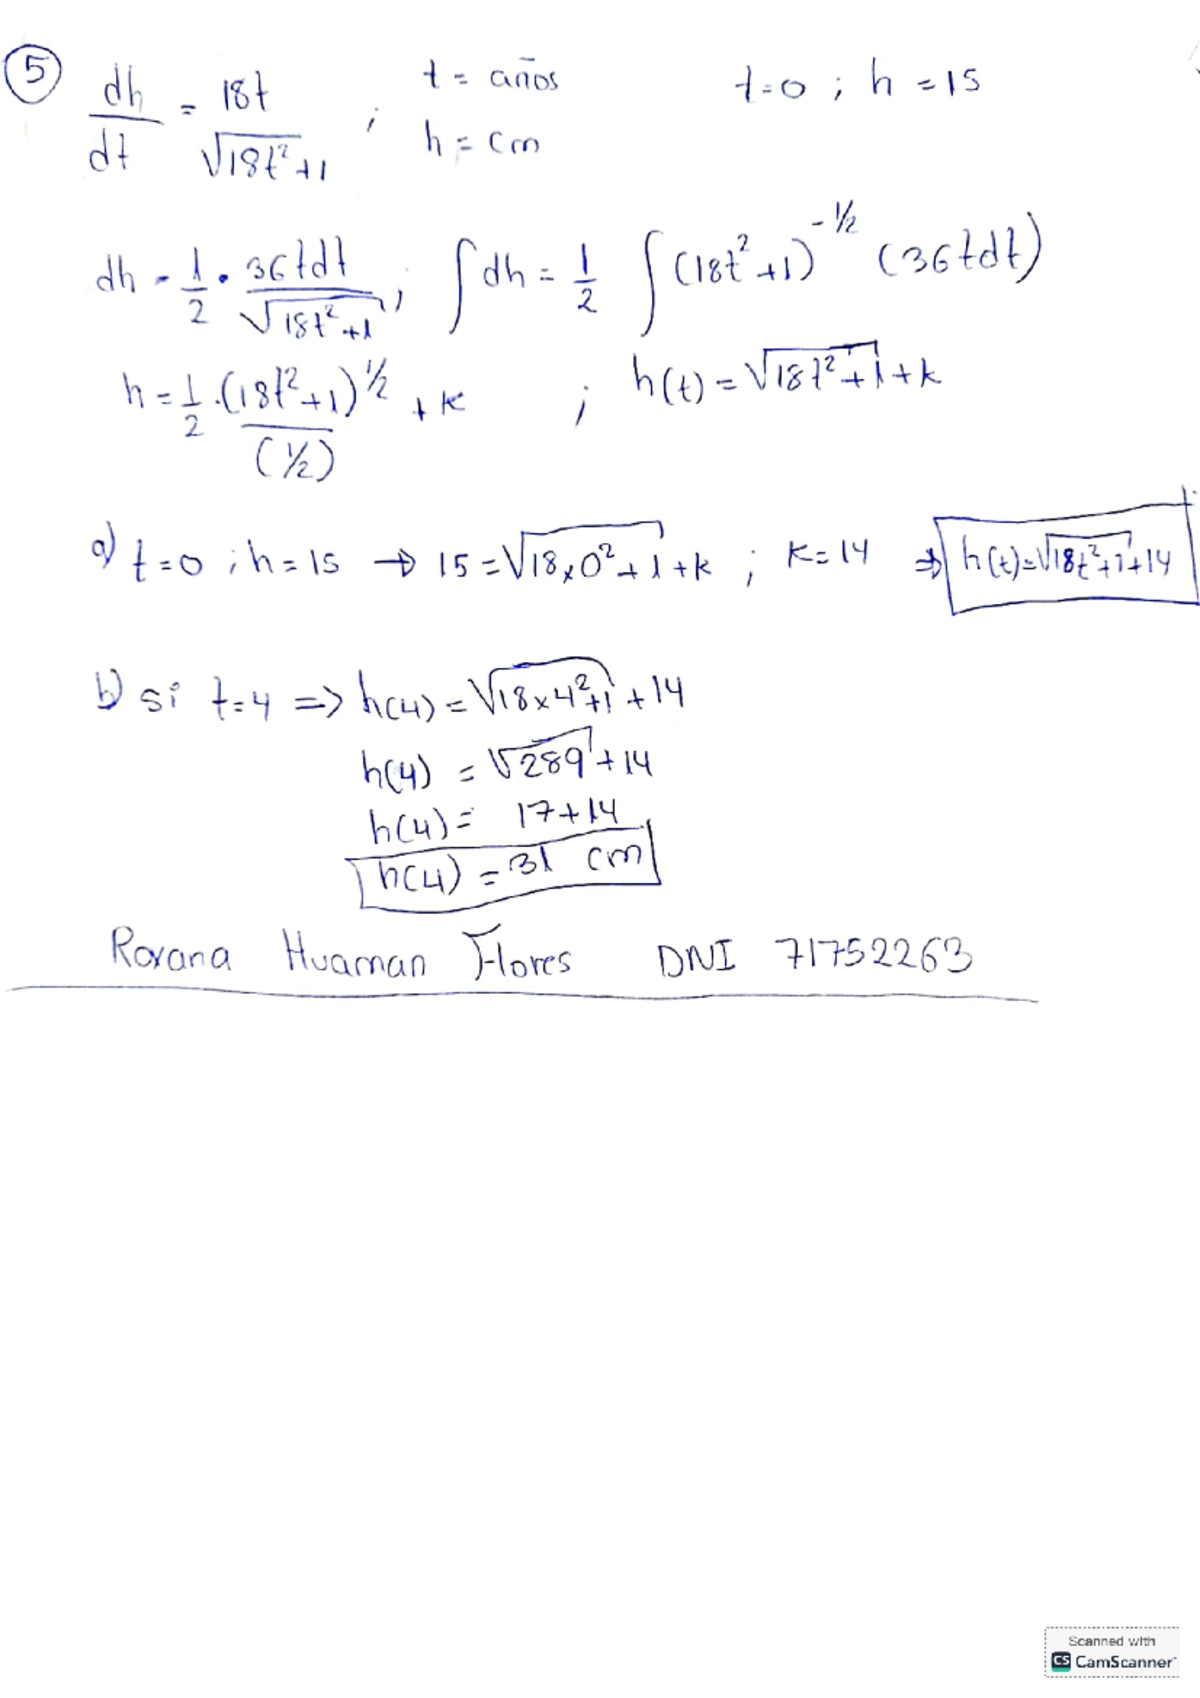 5 dh/dt = 18t/√(18t²+1) ; t = años h = cm t=0 ; h=15
dh = 1/2 · 36tdt/√(18t²+1) ; ∫dh = 1/2 ∫(18t²+1)^(-1/2) (36tdt)
h = 1/2 · (18t²+1)^(1/2)/(1/2) + k ; h(t) = √(18t²+1) + k
a) t=0 ; h=15 → 15 = √(18×0²+1) + k ; k=14 ⇒ h(t)=√(18t²+1)+14
b) si t=4 => h(4) = √(18×4²+1) + 14
h(4) = √289 + 14
h(4) = 17+14
h(4) = 31 cm
Roxana Huaman Flores DNI 71752263
Scanned with
CS CamScanner